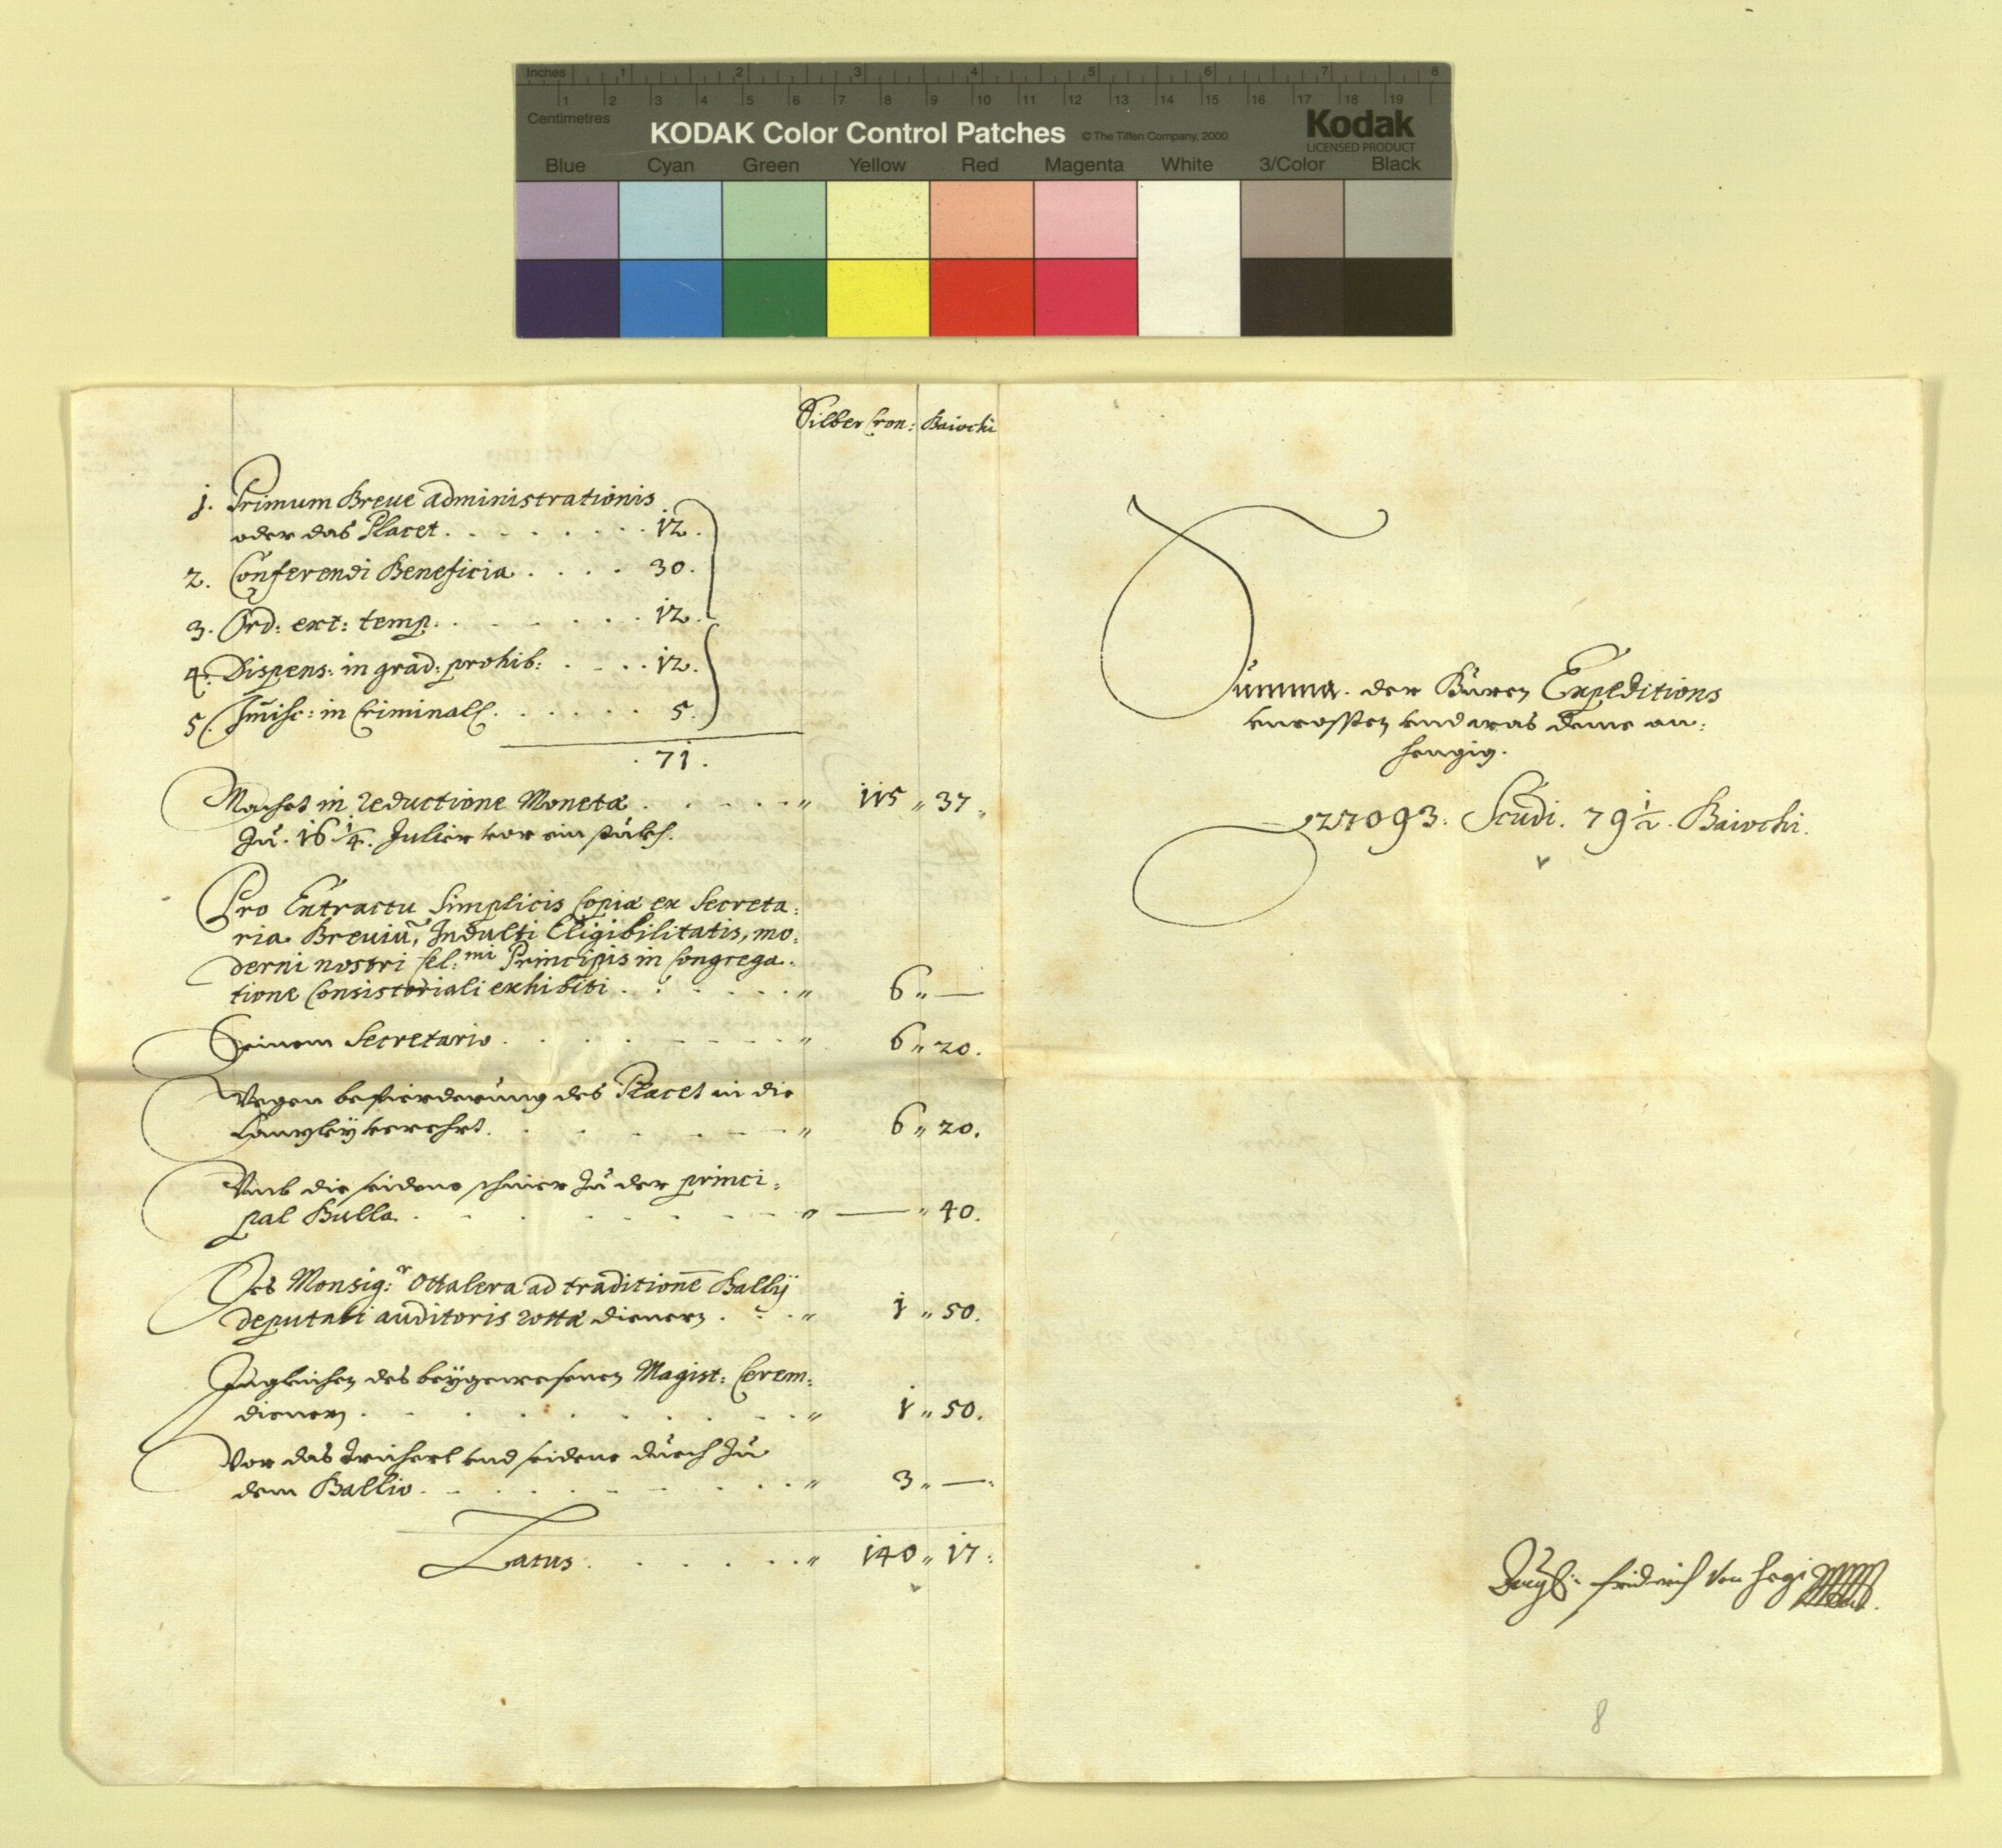 Inches 1 2 3 4 5 6 7 8
1 2 3 4 5 6 7 8 9 10 11 12 13 14 15 16 17 18 19
Centimetres
KODAK Color Control Patches © The Tiffen Company, 2000 Kodak
LICENSED PRODUCT
Blue Cyan Green Yellow Red Magenta White 3/Color Black
Silber Cron: Baiochi
1. Primum Breue administrationis
oder das Placet. 12.
2. Conferendi Beneficia. 30.
3. Ord: ext: temp. 12.
4. Dispens: in grad: prohib: 12.
5. Im̄isc: in Criminall. 5.
71.
Machet in reductione Monetæ. " 115 " 37.
Zu. 16 1/4. Julier vor ein stückh.
Pro Extractu Simplicis Copiæ ex Secreta:
ria Breuiū, Indulti Eligibilitatis, mo:
derni nostri Cel:mi Principis in Congrega:
tione Consistoriali exhibiti. " 6 " —
Seinem Secretario. " 6 " 20.
Wegen befierderung des Placet in die
Canzley verehrt. " 6 " 20.
Vmb die seidene schnier Zu der princi:
pal Bulla. " — " 40.
Des Monsig:r Ottalera ad traditionē Pallij
deputati auditoris rottæ dienern. " 1 " 50.
Ingleichen des beygewesenen Magist: Cerem:
dienern. " 1 " 50.
Vor das Trücherl vnd seidene duech Zu
dem Pallio. " 3 " —
Latus: " 140 " 17:
Summa. der Expeditions
vncossten vnd was deme an:
hengig.
27093. Scudi. 79 1/2. Baiochi.
fridrich von Hegi
8